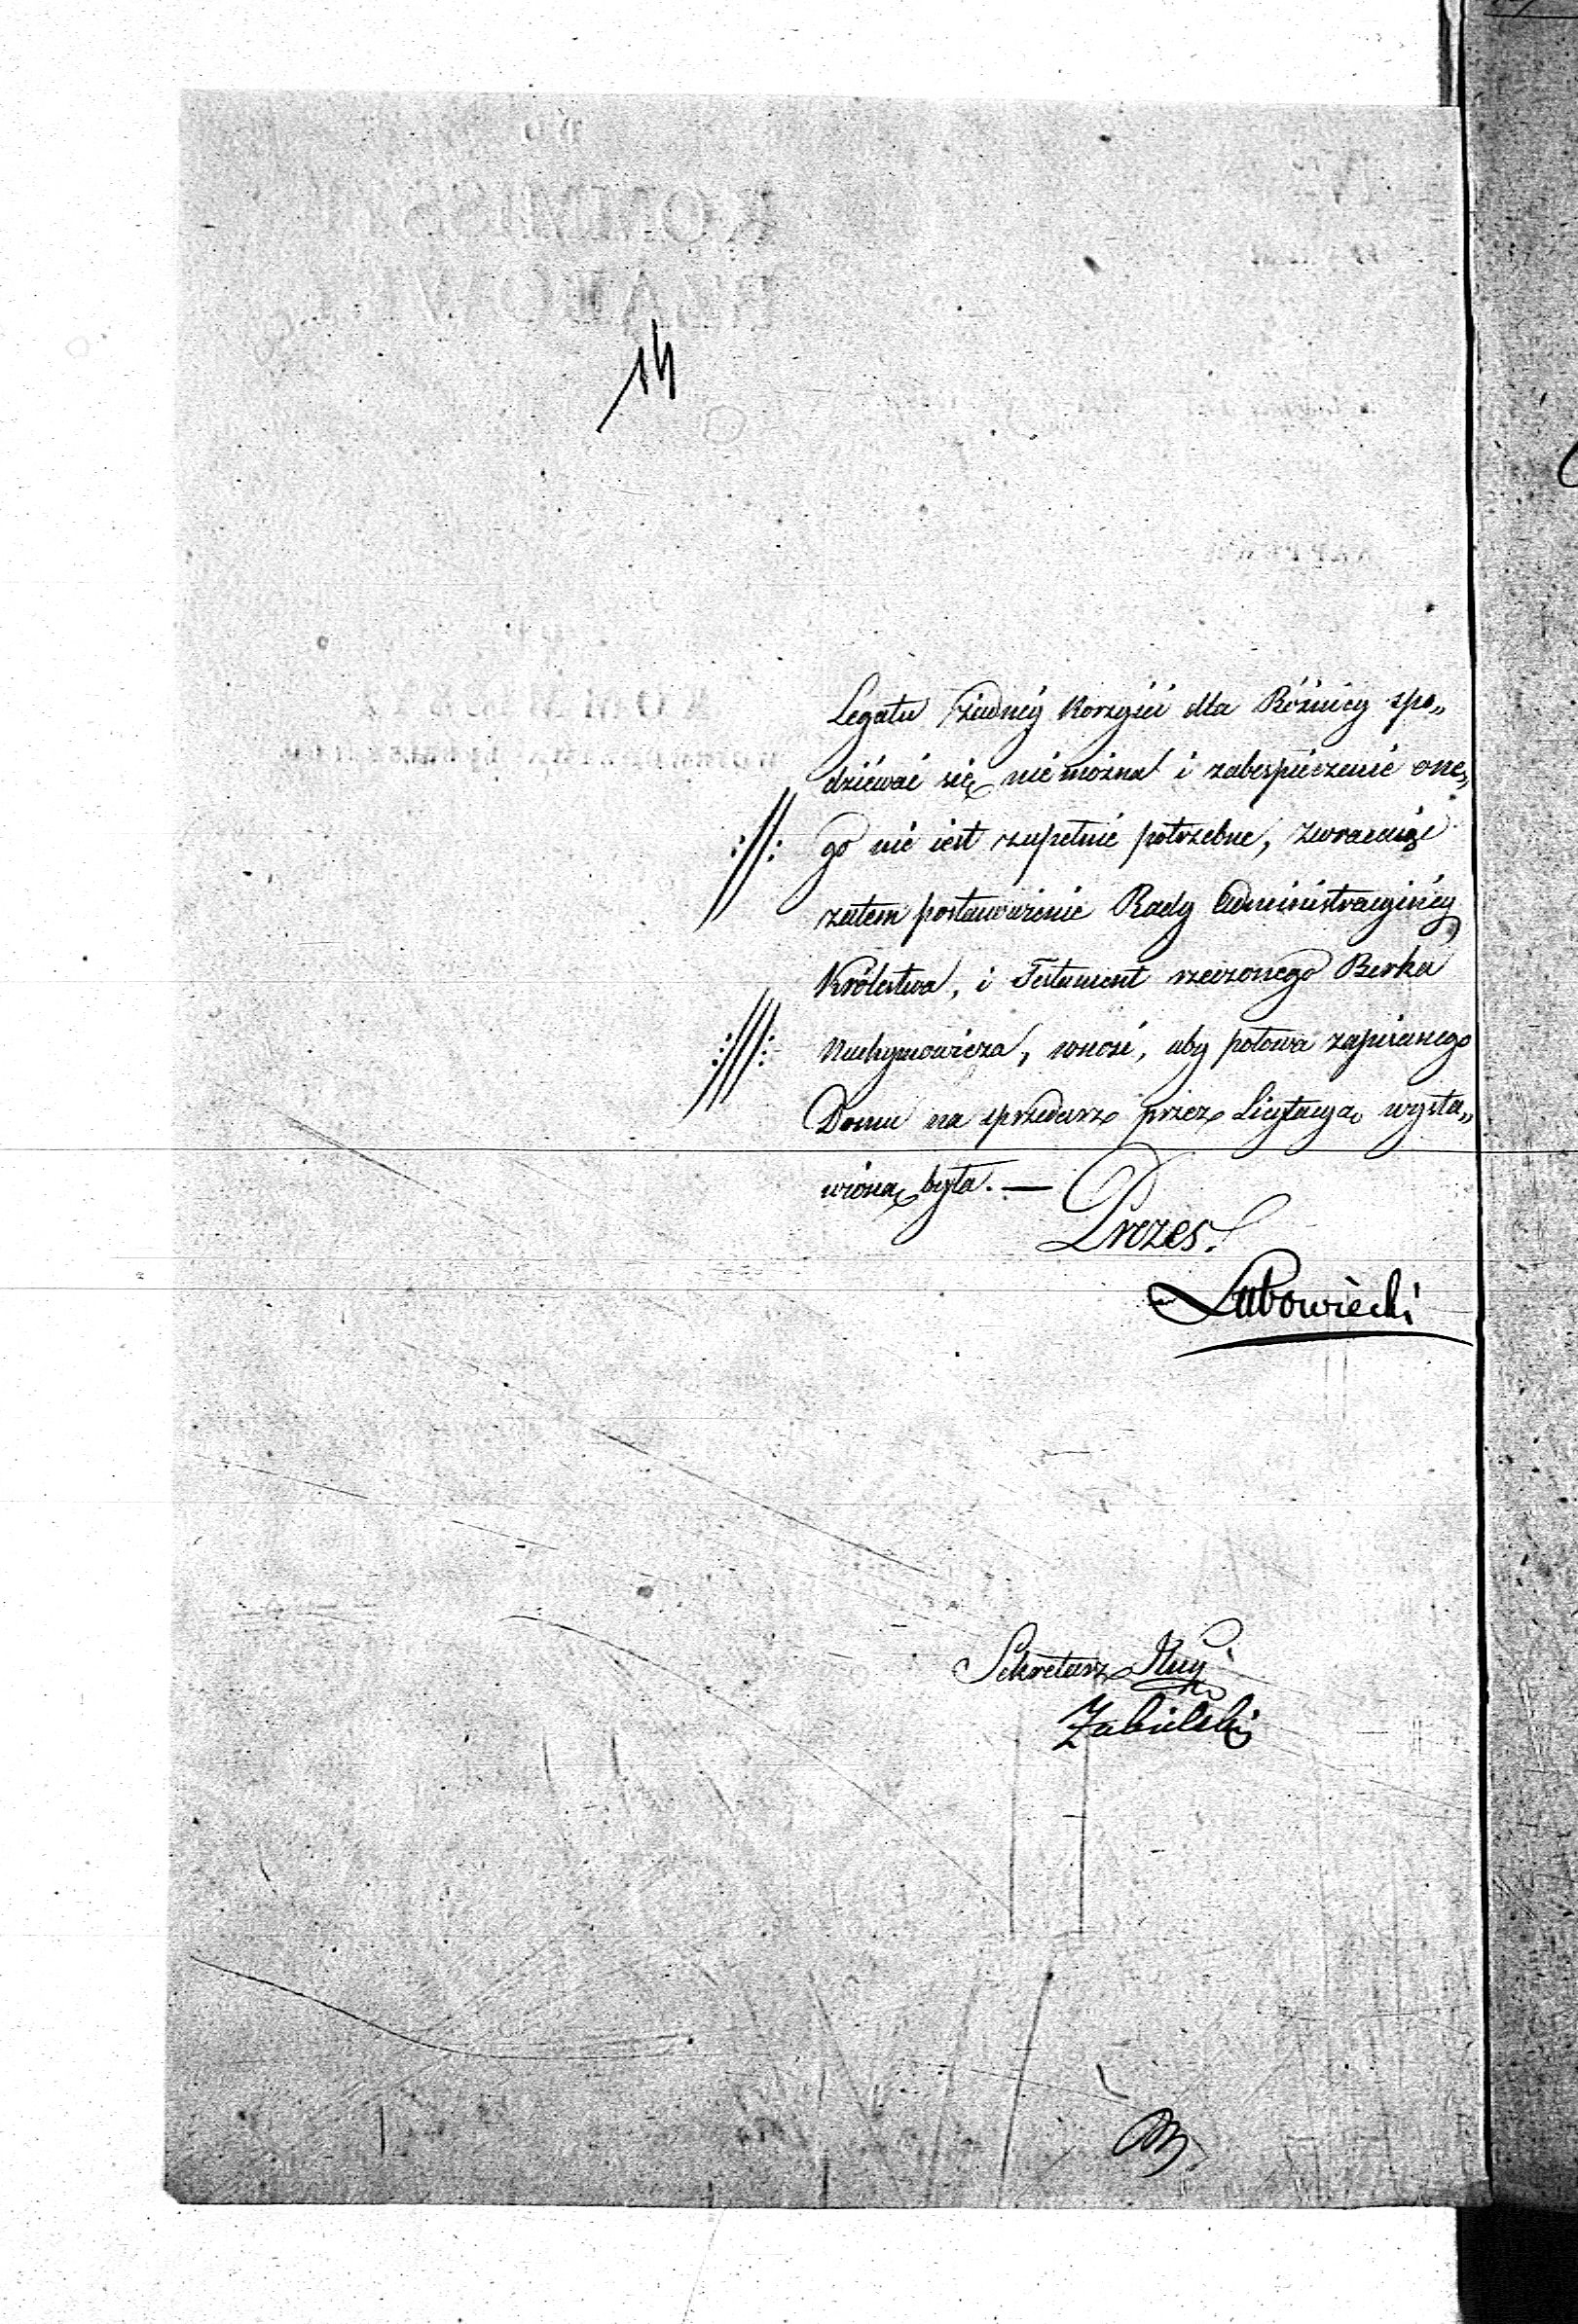 14
Legatu żadnéy korzyści dla Bóżnicy spo„
dziéwać się nie można i zabespieczenie one„
:||: go nie iest zupełnie potrzebne, zwracaiąc
zatem postanowienie Rady Administracyinéy
Królestwa, i Testament rzeczonego Berka
:|||: Nuchymowicza, wnosi, aby połowa zapisanego
Domu na sprzedarz przez Licytacyą wysta„
wioną była. —
Prezes.
Lubowiecki
Sekretarz
Zabielski